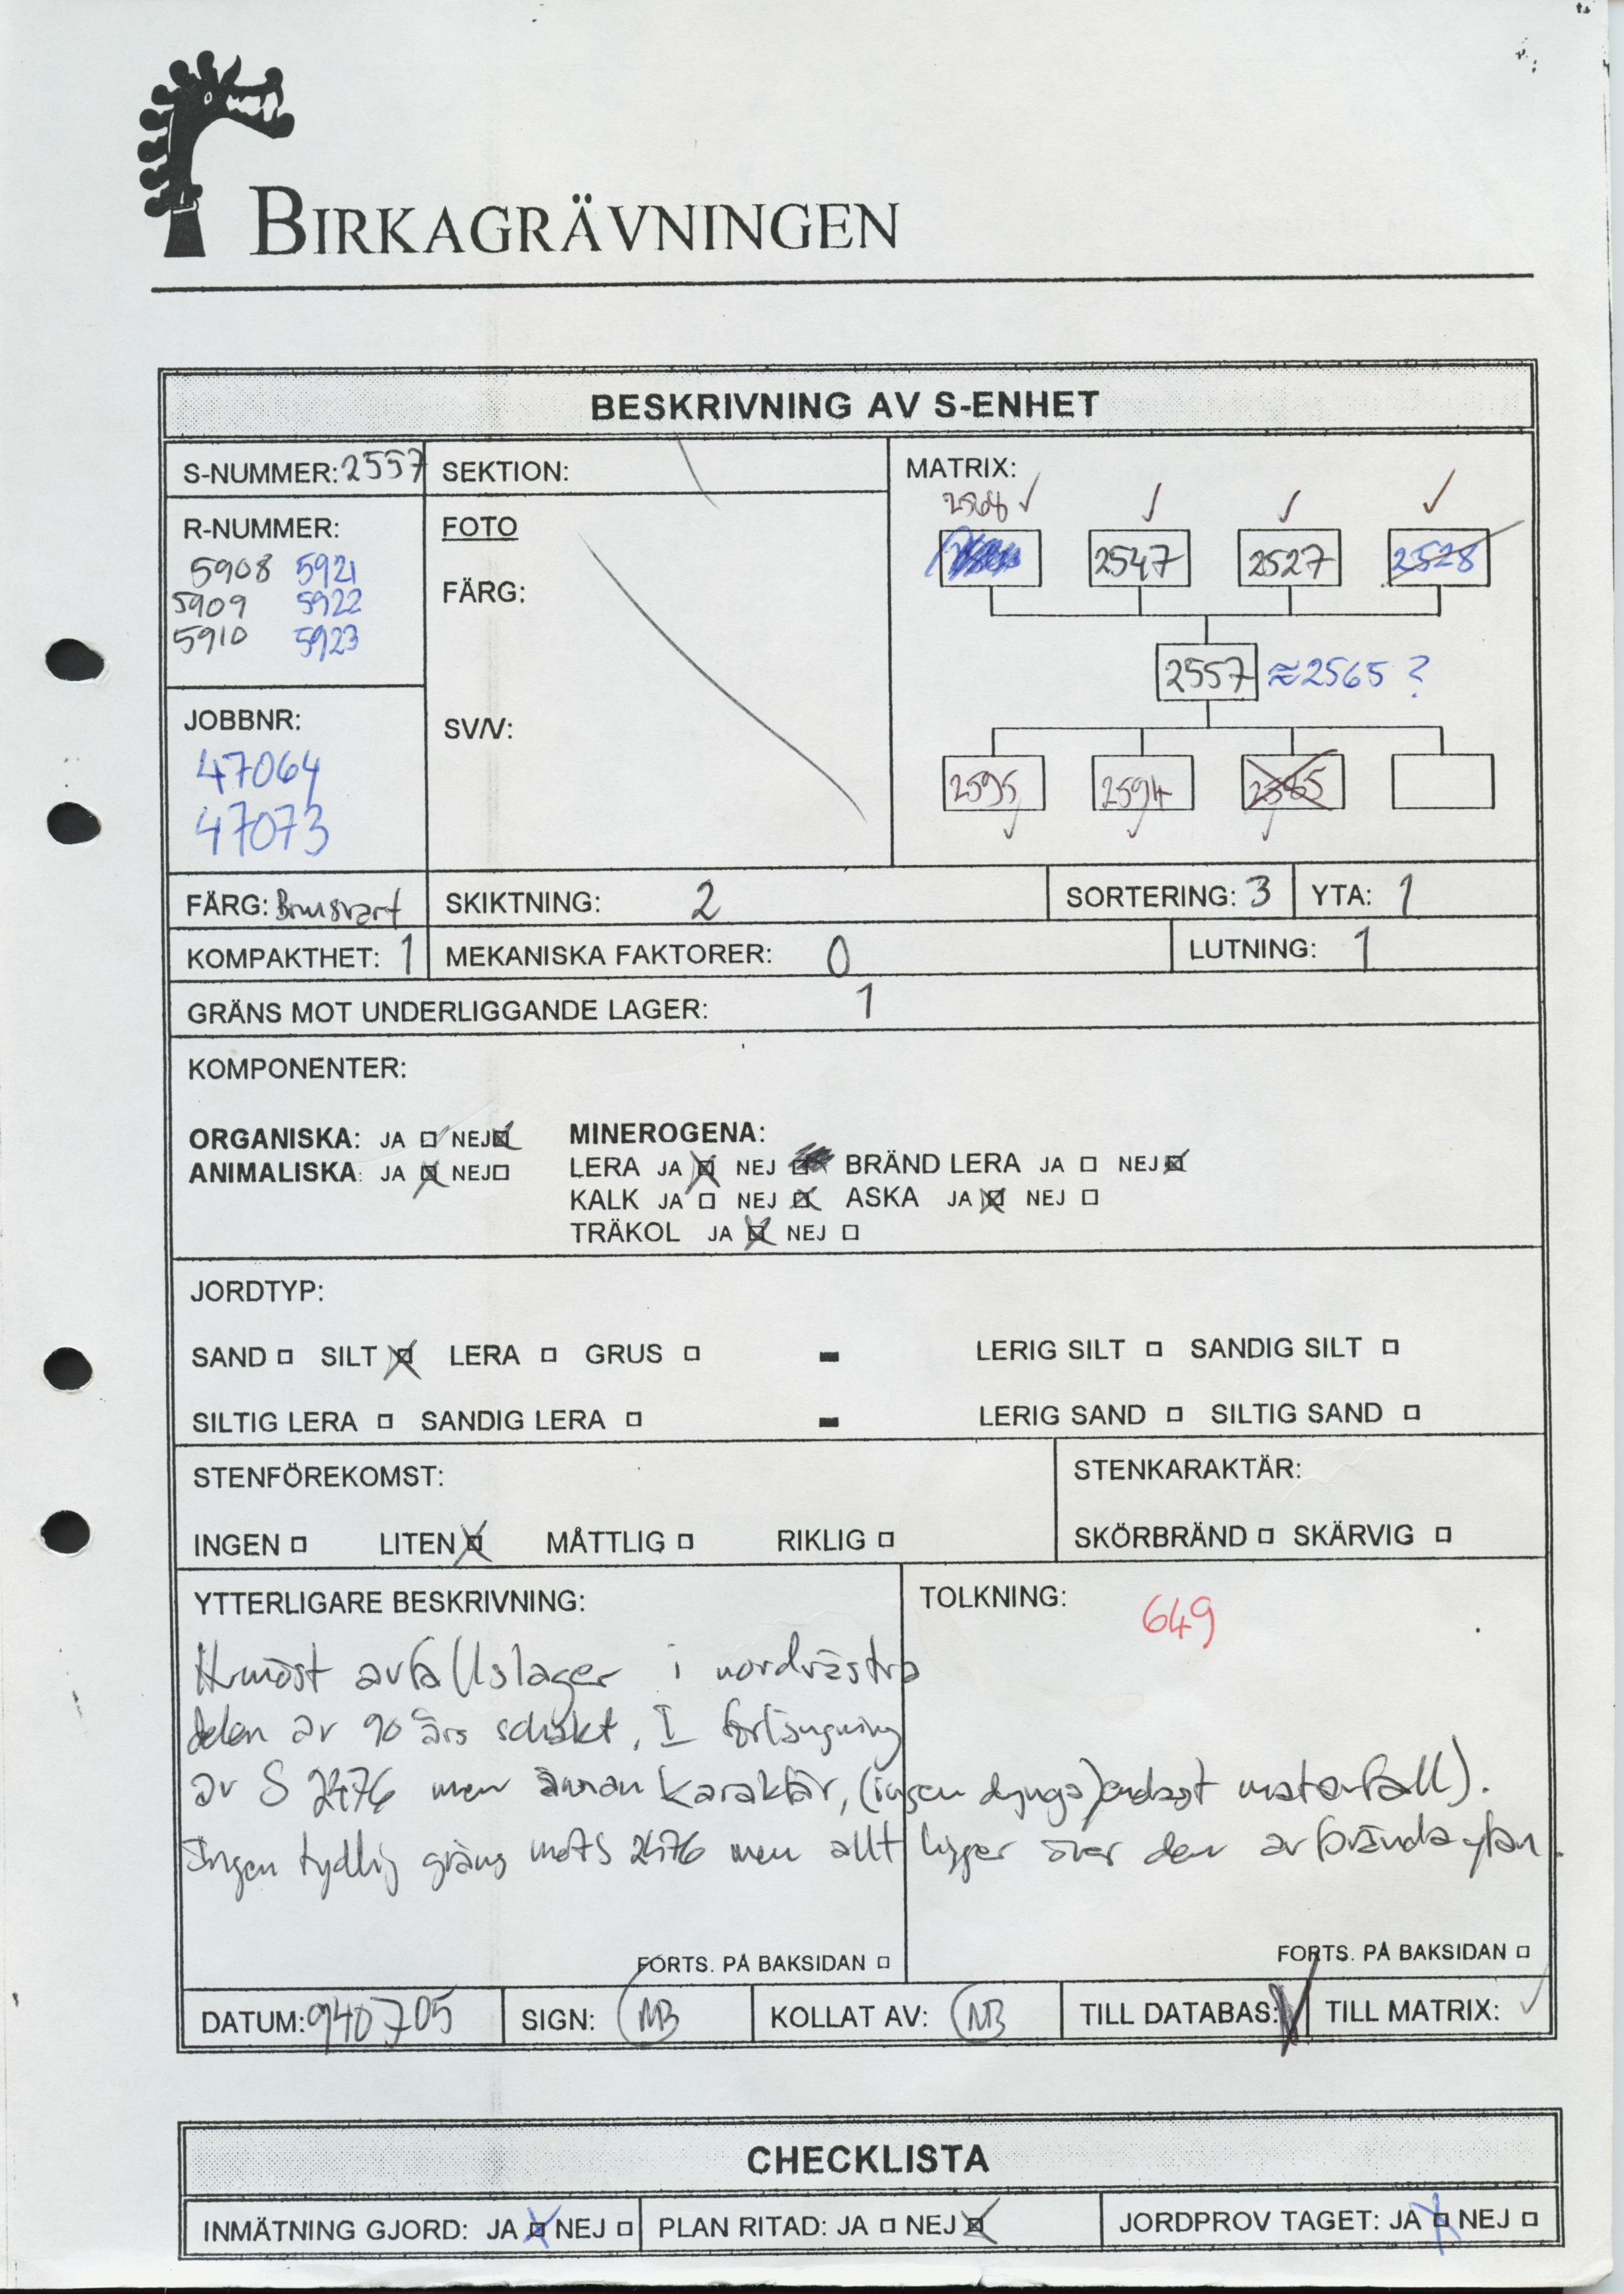 BIRKAGRÄVNINGEN
BESKRIVNING AV S-ENHET
S-NUMMER: 2557
SEKTION:
MATRIX:
R-NUMMER:
5908 5921
5909 5922
5910 5923
FOTO
FÄRG:
SV/V:
2568
2547 2527 2528
2557 ≈2565 ?
2595 2594 2565
JOBBNR:
47064
47073
FÄRG: Brunsvart SKIKTNING: 2 SORTERING: 3 YTA: 1
KOMPAKTHET: 1 MEKANISKA FAKTORER: 0 LUTNING: 1
GRÄNS MOT UNDERLIGGANDE LAGER: 1
KOMPONENTER:
ORGANISKA: JA NEJ MINEROGENA:
ANIMALISKA: JA NEJ LERA JA NEJ BRÄND LERA JA NEJ
KALK JA NEJ ASKA JA NEJ
TRÄKOL JA NEJ
JORDTYP:
SAND SILT LERA GRUS - LERIG SILT SANDIG SILT
SILTIG LERA SANDIG LERA - LERIG SAND SILTIG SAND
STENFÖREKOMST: STENKARAKTÄR:
INGEN LITEN MÅTTLIG RIKLIG SKÖRBRÄND SKÄRVIG
YTTERLIGARE BESKRIVNING: TOLKNING: 649
Humöst avfallslager i nordvästra
delen av 90 års schakt, I förlängning
av S 2476 men annan karaktär, (ingen dynga) endast matavfall).
Ingen tydlig gräns mot S 2476 men allt ligger över den avbrända ytan.
FORTS. PÅ BAKSIDAN FORTS. PÅ BAKSIDAN
DATUM: 940705 SIGN: MB KOLLAT AV: MB TILL DATABAS: TILL MATRIX:
CHECKLISTA
INMÄTNING GJORD: JA NEJ PLAN RITAD: JA NEJ JORDPROV TAGET: JA NEJ